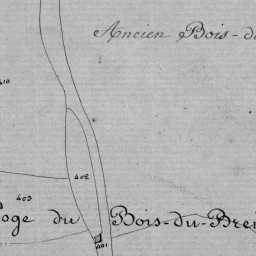 Ancien Bois-d
410
402
403
oge du Bois-du-Brei
401